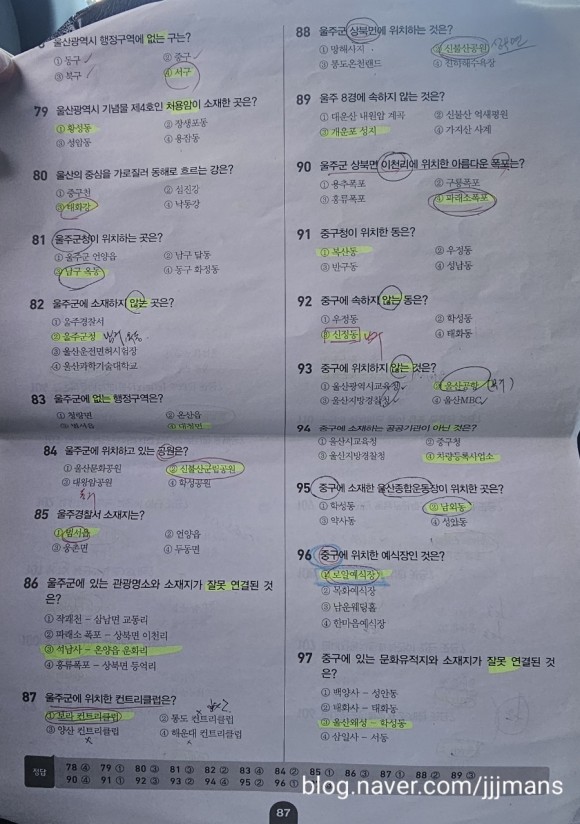 울산광역시 행정구역에 없는 구는?
① 동구 ② 중구
③ 북구 ④ 서구
79 울산광역시 기념물 제4호인 처용암이 소재한 곳은?
① 황성동 ② 장생포동
③ 성암동 ④ 용잠동
80 울산의 중심을 가로질러 동해로 흐르는 강은?
① 중구천 ② 섬진강
③ 태화강 ④ 낙동강
81 울주군청이 위치하는 곳은?
① 울주군 언양읍 ② 남구 달동
③ 남구 옥동 ④ 동구 화정동
82 울주군에 소재하지 않는 곳은?
① 울주경찰서
② 울주군청
③ 울산운전면허시험장
④ 울산과학기술대학교
83 울주군에 없는 행정구역은?
① 청량면 ② 온산읍
③ 범서읍 ④ 대정면
84 울주군에 위치하고 있는 공원은?
① 울산문화공원 ② 신불산군립공원
③ 대왕암공원 ④ 학성공원
85 울주경찰서 소재지는?
① 범서읍 ② 언양읍
③ 웅촌면 ④ 두동면
86 울주군에 있는 관광명소와 소재지가 잘못 연결된 것
은?
① 작괘천 – 삼남면 교동리
② 파래소 폭포 – 상북면 이천리
③ 석남사 – 온양읍 운화리
④ 홍류폭포 – 상북면 등억리
87 울주군에 위치한 컨트리클럽은?
① 보라 컨트리클럽 ② 통도 컨트리클럽
③ 양산 컨트리클럽 ④ 해운대 컨트리클럽
88 울주군 상북면에 위치하는 것은?
① 망해사지 ② 신불산공원
③ 통도온천랜드 ④ 진하해수욕장
89 울주 8경에 속하지 않는 것은?
① 대운산 내원암 계곡 ② 신불산 억새평원
③ 개운포 성지 ④ 가지산 사계
90 울주군 상북면 이천리에 위치한 아름다운 폭포는?
① 용추폭포 ② 구룡폭포
③ 홍류폭포 ④ 파래소폭포
91 중구청이 위치한 동은?
① 복산동 ② 우정동
③ 반구동 ④ 성남동
92 중구에 속하지 않는 동은?
① 우정동 ② 학성동
③ 신정동 ④ 태화동
93 중구에 위치하지 않는 것은?
① 울산광역시교육청 ② 울산공항
③ 울산지방경찰청 ④ 울산MBC
94 중구에 소재하는 공공기관이 아닌 것은?
① 울산시교육청 ② 중구청
③ 울산지방경찰청 ④ 차량등록사업소
95 중구에 소재한 울산종합운동장이 위치한 곳은?
① 학성동 ② 남외동
③ 약사동 ④ 성안동
96 중구에 위치한 예식장인 것은?
① 토암예식장
② 목화예식장
③ 남운웨딩홀
④ 한마음예식장
97 중구에 있는 문화유적지와 소재지가 잘못 연결된 것
은?
① 백양사 – 성안동
② 태화사 – 태화동
③ 울산왜성 – 학성동
④ 삼일사 – 서동
정답
78 ④ 79 ① 80 ③ 81 ③ 82 ② 83 ④ 84 ② 85 ① 86 ③ 87 ① 88 ② 89 ③
90 ④ 91 ① 92 ③ 93 ② 94 ④ 95 ② 96 ①
blog.naver.com/jjjmans
87